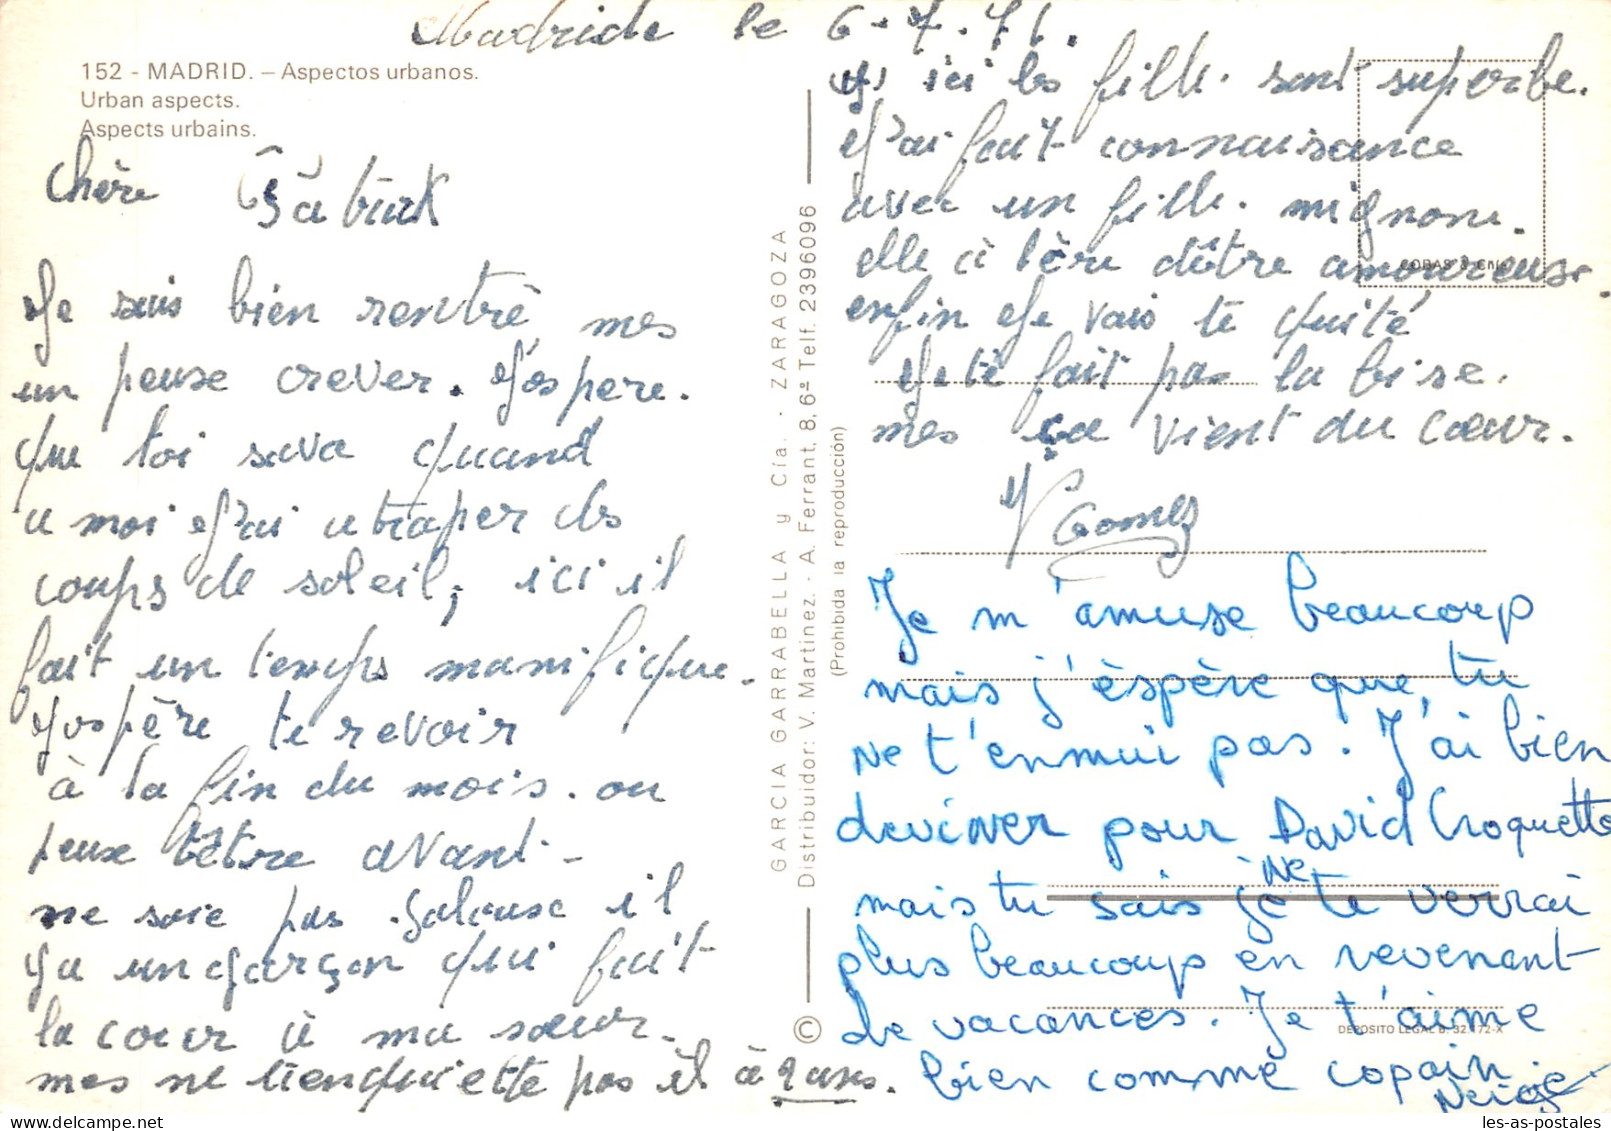 Madride le 6-7.71.
152 - MADRID. – Aspectos urbanos.
Urban aspects.
Aspects urbains.
chère
Je suis bien rentrè mes
un peuse crever. J'espere.
que toi sava quand
a moi J'ai atraper des
coups de soleil, ici il
fait un temps manifique.
J'espère te revoir
à la fin du mois. ou
peuse têtre avant -
ne soie pas Jalouse il
ya un garçon qui fait
la cour à ma sœur.
mes ne t'enquiette pas il à 2 ans.
GARCIA GARRABELLA y Cía. - ZARAGOZA
Distribuidor: V. Martinez. - A. Ferrant, 8, 6º Telf. 2396096
(Prohibida la reproducción)
©
ici les fille. sont superbe.
J'ai fait connaisance
aver un fille. mignone.
elle à lère dêtre amoureuse.
enfin Je vais te quité
Je te fait pas la bise.
mes ça vient du cœur.
Gomez
Je m'amuse beaucoup
mais j'éspère que tu
ne t'ennui pas. J'ai bien
deviner pour David Croquette
mais tu sais je ne te verrai
plus beaucoup en revenant
de vacances. Je t'aime
bien comme copain.
Neige
DEPOSITO LEGAL B. 32.172-X
les-as-postales